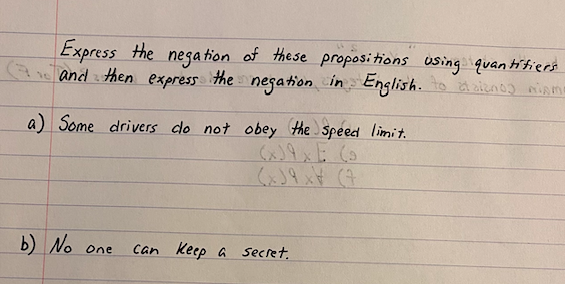 Express the negation of these propositions using quantifiers
and then express the negation in English.
a) Some drivers do not obey the speed limit.
e) ∃x P(x)
f) ∀x P(x)
b) No one can keep a secret.